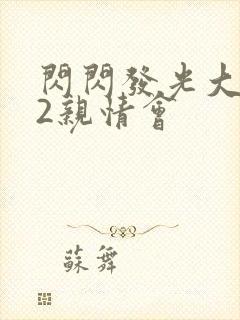 閃閃發光大
2親情會
蘇舞